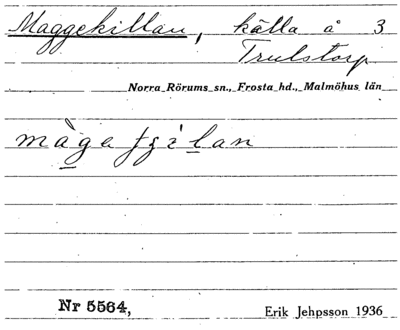 Maggekillan, källa å 3
Trulstorp
Norra Rörums sn., Frosta hd., Malmöhus län
Nr 5564,
Erik Jehpsson 1936